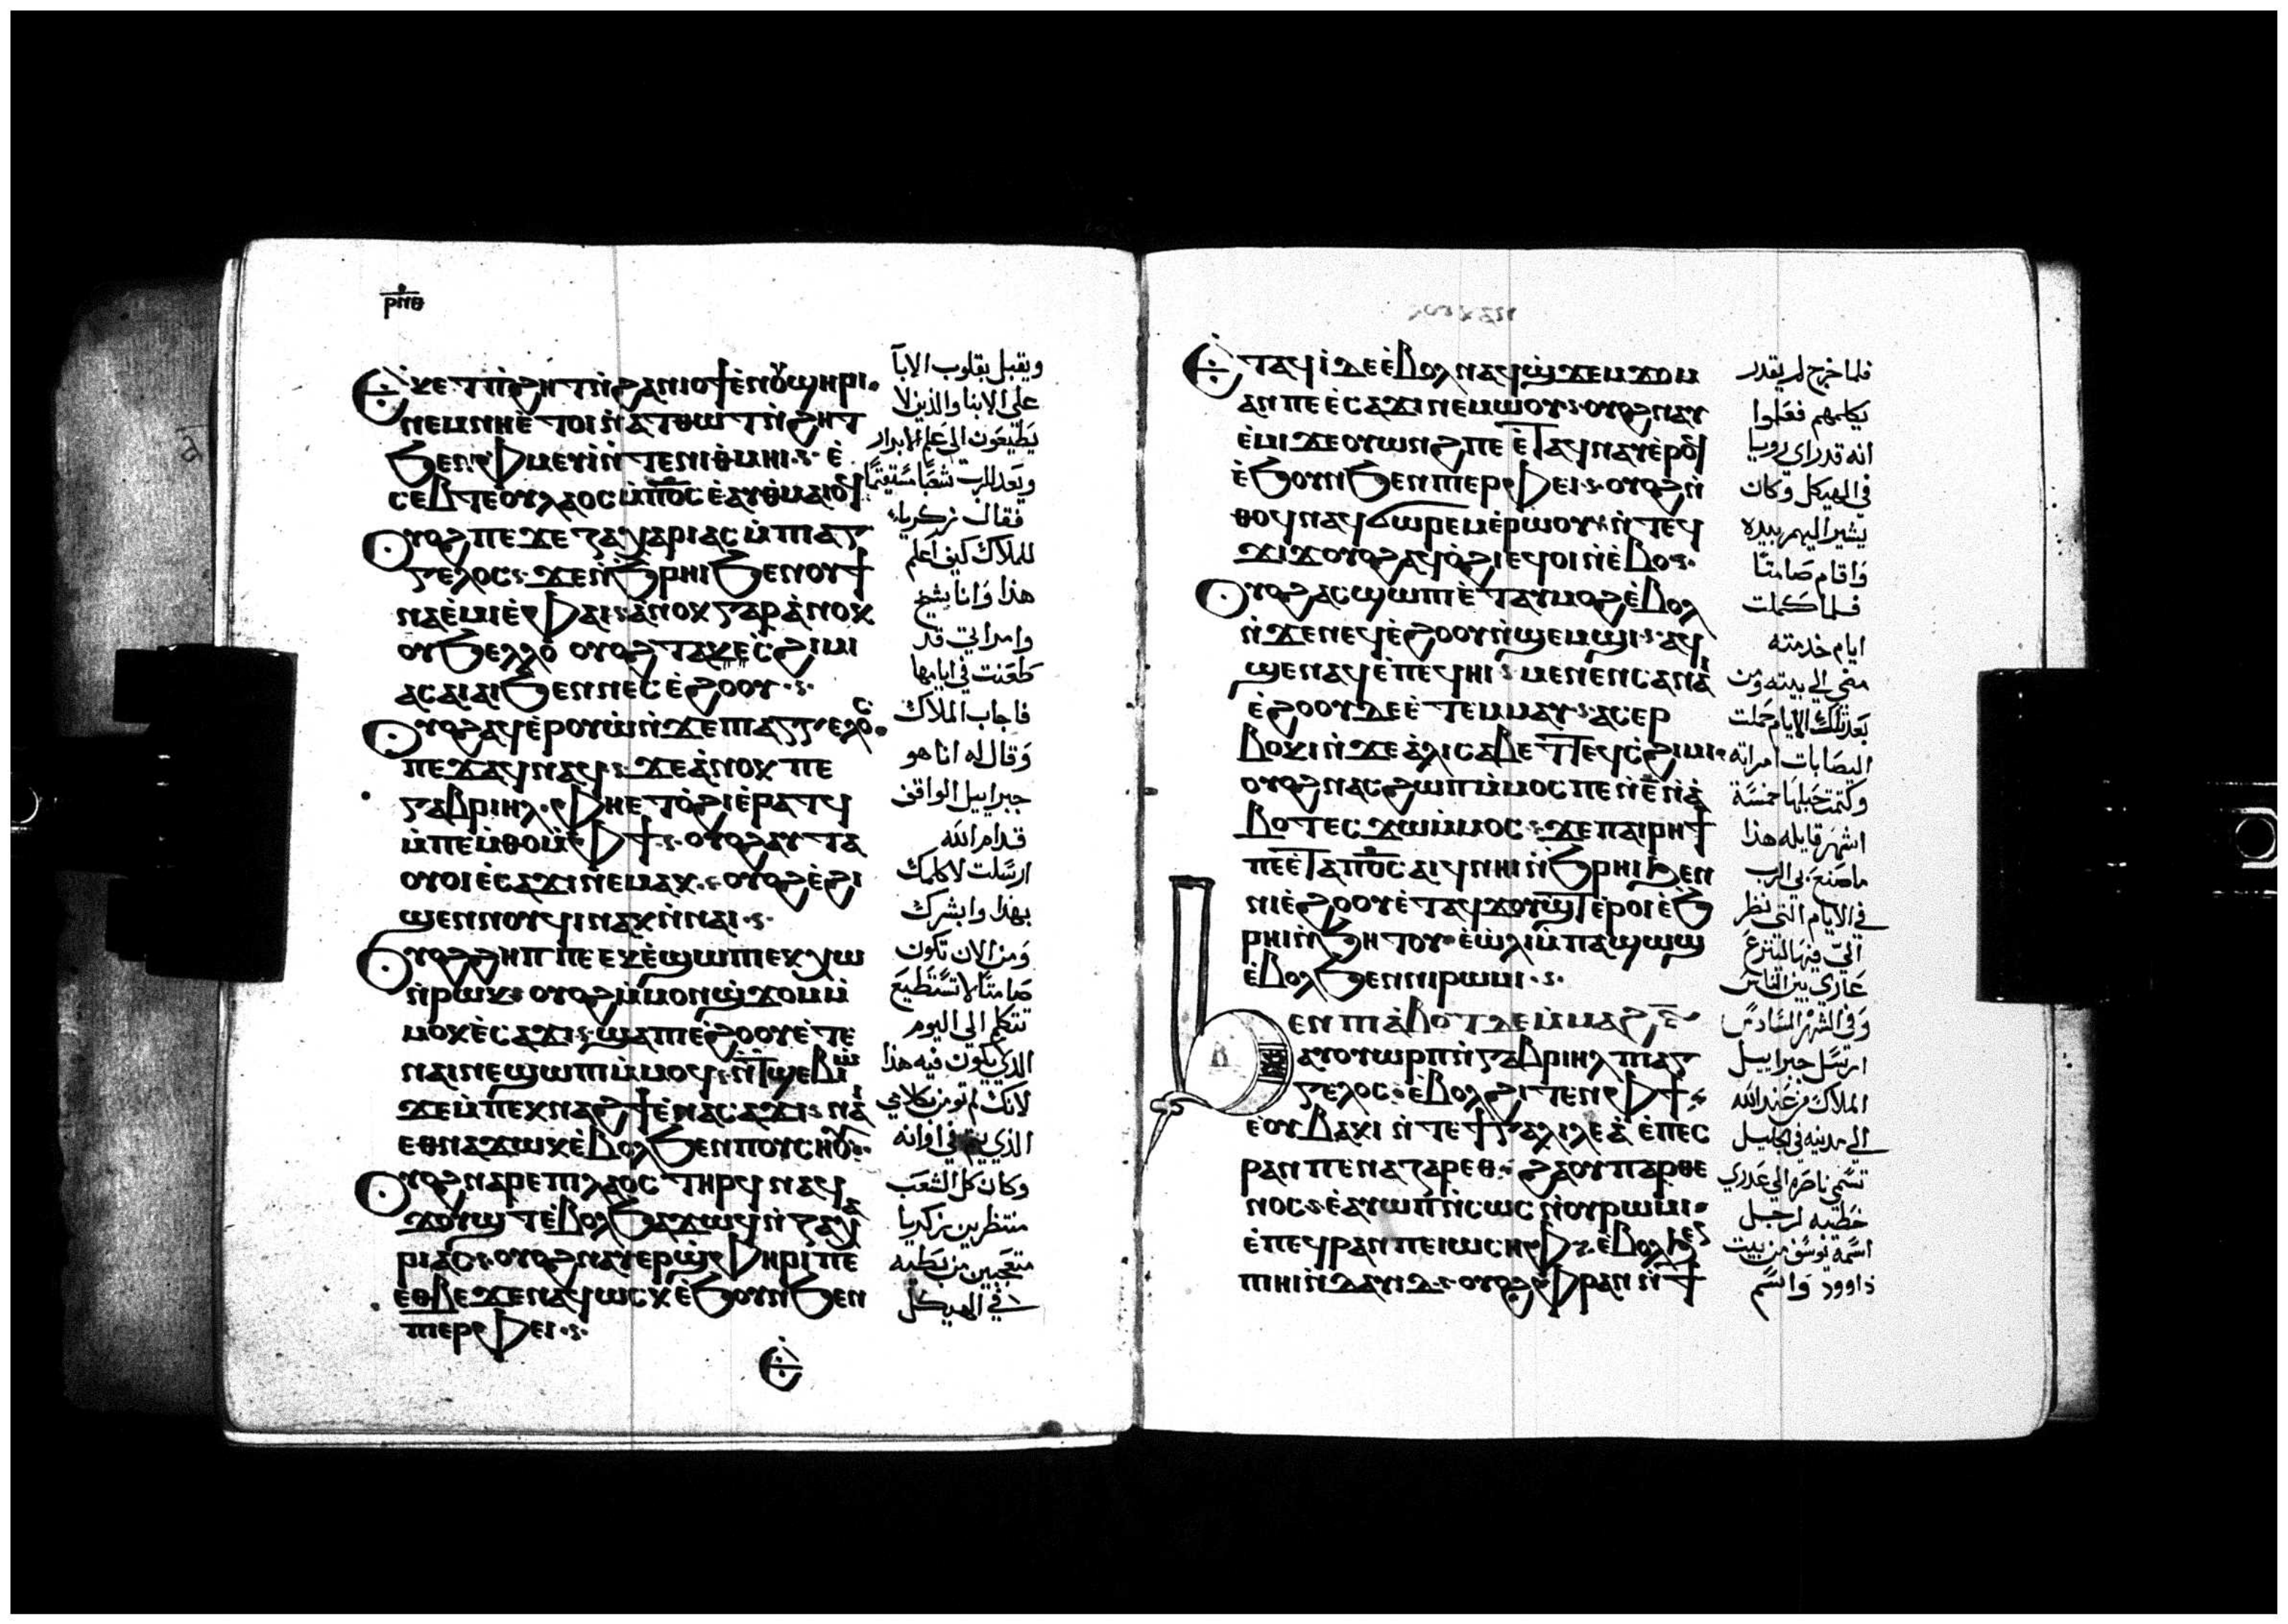 ⲣⲛⲑ
Ⲉ̇ⲕⲉⲧ ⲡ̇ϩⲏⲧ ⲛ̇ϩⲁⲛⲓⲟϯ ⲉ̇ⲛⲟⲩϣⲏⲣⲓ
ⲛⲉⲙ ⲛⲏⲉ̇ⲧⲟⲓ ⲛ̇ⲁⲧⲑⲱⲧ ⲛ̇ϩⲏⲧ
ϧⲉⲛ ⲫⲙⲉⲩⲓ̇ ⲛ̇ⲧⲉ ⲛⲓⲑⲙⲏⲓ ⲉ̇
ⲥⲉⲃⲧⲉ ⲟⲩⲗⲁⲟⲥ ⲙ̇ⲡⲟ̅ⲥ̅ ⲉ̇ⲁⲩⲑⲙⲁⲓⲟϥ
Ⲟⲩⲟϩ ⲡⲉϫⲉ ⲍⲁⲭⲁⲣⲓⲁⲥ ⲙ̇ⲡⲓⲁⲅ
ⲅⲉⲗⲟⲥ ϫⲉ ⲛ̇ϧⲣⲏⲓ ϧⲉⲛ ⲟⲩ ϯ
ⲛⲁⲉ̇ⲙⲓ ⲉ̇ⲫⲁⲓ ⲁ̇ⲛⲟⲕ ⲅⲁⲣ ⲁ̇ⲛⲟⲕ
ⲟⲩϧⲉⲗⲗⲟ ⲟⲩⲟϩ ⲧⲁⲕⲉⲥϩⲓⲙⲓ
ⲁⲥⲁⲓⲁⲓ ϧⲉⲛ ⲛⲉⲥⲉ̇ϩⲟⲟⲩ
Ⲟⲩⲟϩ ⲁϥⲉ̇ⲣⲟⲩⲱ̇ ⲛ̇ϫⲉ ⲡⲓⲁⲅⲅⲉⲗⲟⲥ
ⲡⲉϫⲁϥ ⲛⲁϥ ϫⲉ ⲁ̇ⲛⲟⲕ ⲡⲉ
ⲅⲁⲃⲣⲓⲏⲗ ⲫⲏⲉⲧⲟ̇ϩⲓ ⲉ̇ⲣⲁⲧϥ
ⲙ̇ⲡⲉⲙ̇ⲑⲟ ⲙ̇ⲫϯ ⲟⲩⲟϩ ⲁⲩⲧⲁ
ⲟⲩⲟⲓ ⲉ̇ⲥⲁϫⲓ ⲛⲉⲙⲁⲕ ⲟⲩⲟϩ ⲉ̇ϩⲓ
ϣⲉⲛⲛⲟⲩϥⲓ ⲛⲁⲕ ⲛ̇ⲛⲁⲓ
Ⲟⲩⲟϩ ϩⲏⲡⲡⲉ ⲉⲕⲉ̇ϣⲱⲡⲓ ⲉⲕⲭⲱ
ⲛ̇ⲣⲱⲕ ⲟⲩⲟϩ ⲙ̇ⲙⲟⲛ ϣ̇ϫⲟⲙ ⲙ̇
ⲙⲟⲕ ⲉ̇ⲥⲁϫⲓ ϣⲁ ⲡⲓⲉ̇ϩⲟⲟⲩ ⲉ̇ⲧⲉ
ⲛⲁⲓ ⲛⲉϣⲱⲡⲓ ⲙ̇ⲙⲟϥ ⲛ̇ⲧϣⲉⲃⲓⲱ
ϫⲉ ⲙ̇ⲡⲉⲕⲛⲁϩϯ ⲉ̇ⲛⲁⲥⲁϫⲓ ⲛⲁⲓ
ⲉⲑⲛⲁϫⲱⲕ ⲉ̇ⲃⲟⲗ ϧⲉⲛ ⲡⲟⲩⲥⲏⲟⲩ
Ⲟⲩⲟϩ ⲛⲁⲣⲉ ⲡⲓⲗⲁⲟⲥ ⲧⲏⲣϥ ⲛⲁϥ
ϫⲟⲩϣⲧ ⲉ̇ⲃⲟⲗ ϧⲁϫⲱϥ ⲛ̇ⲍⲁⲭⲁ
ⲣⲓⲁⲥ ⲟⲩⲟϩ ⲛⲁⲩⲉⲣϣ̇ⲫⲏⲣⲓ ⲡⲉ
ⲉ̇ⲑⲃⲉ ϫⲉ ⲛⲁϥⲱⲥⲕ ⲉ̇ϧⲟⲩⲛ ϧⲉⲛ
ⲡⲓⲉⲣⲫⲉⲓ
Ⲉ̇
ويقبل بقلوب الابآ
على الابنا والذين لا
يطيعون الى علم الابرار
ويعد للرب شعبًا مستقيمًا
فقال زكرياء
للملاك كيف اعلم
هذا وانا شيخ
وامراتي قد
طعنت في ايامها
فاجاب الملاك
وقال له انا هو
جبراييل الواقف
قدام الله
ارسلت لاكلمك
بهذا وابشرك
ومن الان تكون
صامتًا لا تستطيع
تتكلم الى اليوم
الذي يكون فيه هذا
لانك لم تومن بكلامي
الذي يتم في اوانه
وكان كل الشعب
منتظرين زكريا
متعجبين من بطيه
في الهيكل
Ⲉ̇ⲧⲁϥⲓ̇ ⲇⲉ ⲉ̇ⲃⲟⲗ ⲛⲁϥϣ̇ϫⲉⲙϫⲟⲙ
ⲁⲛ ⲡⲉ ⲉ̇ⲥⲁϫⲓ ⲛⲉⲙⲱⲟⲩ ⲟⲩⲟϩ ⲛⲁⲩ
ⲉ̇ⲙⲓ ϫⲉ ⲟⲩⲱⲛϩ ⲡⲉ ⲉ̇ⲧⲁϥⲛⲁⲩ ⲉ̇ⲣⲟϥ
ⲉ̇ϧⲟⲩⲛ ϧⲉⲛ ⲡⲓⲉⲣⲫⲉⲓ ⲟⲩⲟϩ ⲛ̇
ⲑⲟϥ ⲛⲁϥϭⲱⲣⲉⲙ ⲉ̇ⲣⲱⲟⲩ ⲛ̇ⲧⲉϥ
ϫⲓϫ ⲟⲩⲟϩ ⲁϥⲟ̇ϩⲓ ⲉϥⲟⲓ ⲛ̇ⲉ̇ⲃⲟ
Ⲟⲩⲟϩ ⲁⲥϣⲱⲡⲓ ⲉ̇ⲧⲁⲩⲙⲟϩ ⲉ̇ⲃⲟⲗ
ⲛ̇ϫⲉ ⲛⲉϥⲉ̇ϩⲟⲟⲩ ⲛ̇ϣⲉⲙϣⲓ ⲁϥ
ϣⲉⲛⲁϥ ⲉ̇ⲡⲉϥⲏⲓ ⲙⲉⲛⲉⲛⲥⲁ ⲛⲁⲓ
ⲉ̇ϩⲟⲟⲩ ⲇⲉ ⲉ̇ⲧⲉⲙⲙⲁⲩ ⲁⲥⲉⲣ
ⲃⲟⲕⲓ ⲛ̇ϫⲉ ⲁ̇ⲗⲓⲥⲁⲃⲉⲧ ⲧⲉϥⲥ̇ϩⲓⲙⲓ
ⲟⲩⲟϩ ⲛⲁⲥϩⲱⲡ ⲙ̇ⲙⲟⲥ ⲡⲉ ⲛ̇ⲉ̅ ⲛ̇ⲁ̇
ⲃⲟⲧ ⲉⲥϫⲱ ⲙ̇ⲙⲟⲥ ϫⲉ ⲡⲁⲓⲣⲏϯ
ⲡⲉ ⲉ̇ⲧⲁ ⲡⲟ̅ⲥ̅ ⲁⲓϥ ⲛⲏⲓ ⲛ̇ϧⲣⲏⲓ ϧⲉⲛ
ⲛⲓⲉ̇ϩⲟⲟⲩ ⲉ̇ⲧⲁϥϫⲟⲩϣⲧ ⲉ̇ⲣⲟⲓ ⲉ̇ϧ
ⲣⲏⲓ ⲛ̇ϧⲏⲧⲟⲩ ⲉ̇ⲱ̇ⲗⲓ ⲙ̇ⲡⲁϣⲱϣ
ⲉ̇ⲃⲟⲗ ϧⲉⲛ ⲛⲓⲣⲱⲙⲓ
ϧⲉⲛ ⲡⲓⲁ̇ⲃⲟⲧ ⲇⲉ ⲙ̇ⲙⲁϩ ⲋ̅
ⲁⲩⲟⲩⲱⲣⲡ ⲛ̇ⲅⲁⲃⲣⲓⲏⲗ ⲡⲓⲁⲅ
ⲅⲉⲗⲟⲥ ⲉ̇ⲃⲟⲗ ϩⲓⲧⲉⲛ ⲫϯ
ⲉ̇ⲟⲩⲃⲁⲕⲓ ⲛ̇ⲧⲉ ϯⲅⲁⲗⲓⲗⲉⲁ̇ ⲉ̇ⲡⲉⲥ
ⲣⲁⲛ ⲡⲉ ⲛⲁⲍⲁⲣⲉⲑ ϩⲁ ⲟⲩⲡⲁⲣⲑⲉ
ⲛⲟⲥ ⲉ̇ⲁⲩⲱⲡ ⲛ̇ⲥⲱⲥ ⲛ̇ⲟⲩⲣⲱⲙⲓ
ⲉ̇ⲡⲉϥⲣⲁⲛ ⲡⲉ ⲓⲱⲥⲏⲫ ⲉ̇ⲃⲟⲗ ϧⲉⲛ
ⲡⲏⲓ ⲛ̇ⲇⲁⲩⲓⲇ ⲟⲩⲟϩ ⲫⲣⲁⲛ ⲛ̇ϯ
فلما خرج لم يقدر
يكلمهم فعلموا
انه قد راي رويا
في الهيكل وكان
يشير اليهم بيده
واقام صامتًا
فلما كملت
ايام خدمته
مضي الى بيته ومن
بعد تلك الايام حملت
اليصابات امراته
وكتمت حبلها خمسة
اشهر قايله هذا
ما صنع بي الرب
في الايام التي نظر
اليّ فيها لينزع
عاري بين الناس
وفي الشهر السادس
ارسل جبراييل
الملاك من عند الله
الى مدينه في الجليل
تسمي ناصره الي عذري
خطيبه لرجل
اسمه يوسف من بيت
داوود واسم